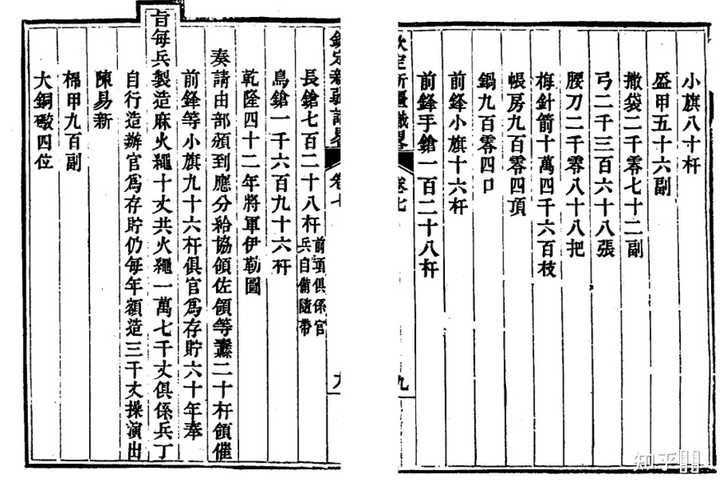 小旗八十杆
盔甲五十六副
撒袋二千零七十二副
弓二千三百六十八張
腰刀二千零八十八把
梅針箭十萬四千六百枝
帳房九百零四頂
鍋九百零四口
前鋒小旗十六杆
前鋒手鎗一百二十八杆
欽定新疆識畧 卷七 九
長鎗七百二十八杆 前項俱係官兵自備隨帶
鳥鎗一千六百九十六杆
乾隆四十二年將軍伊勒圖
奏請由部頒到應分給協領佐領等纛二十杆領催
前鋒等小旗九十六杆俱官爲存貯六十年奉
旨每兵製造麻火繩十丈共火繩一萬七千丈俱係兵丁
自行造辦官爲存貯仍每年額造三千丈操演出
陳易新
棉甲九百副
大銅礮四位
欽定新疆識畧 卷七 九
知乎